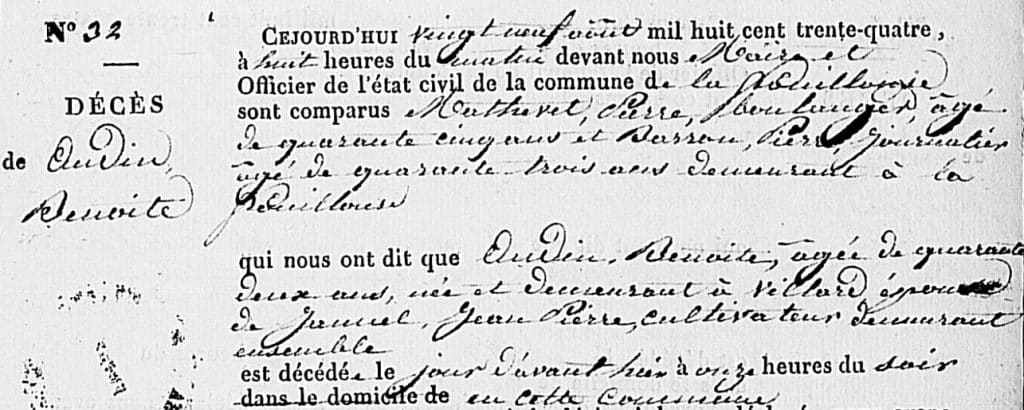 N° 32
DÉCÈS
de Oudin,
Benoite
CEJOURD'HUI vingt neuf août mil huit cent trente-quatre,
à huit heures du matin devant nous Maire et
Officier de l'état civil de la commune de la Fouillouse
sont comparus Mathevet, Pierre, boulanger, âgé
de quarante cinq ans et Barrou, Pierre, journalier
âgé de quarante trois ans demeurant à la
Fouillouse
qui nous ont dit que Oudin, Benoite, âgée de quarante
deux ans, née et demeurant à Villard épouse
de Januel, Jean Pierre, cultivateur demeurant
ensemble
est décédée le jour d'avant hier à onze heures du soir
dans le domicile de en cette commune